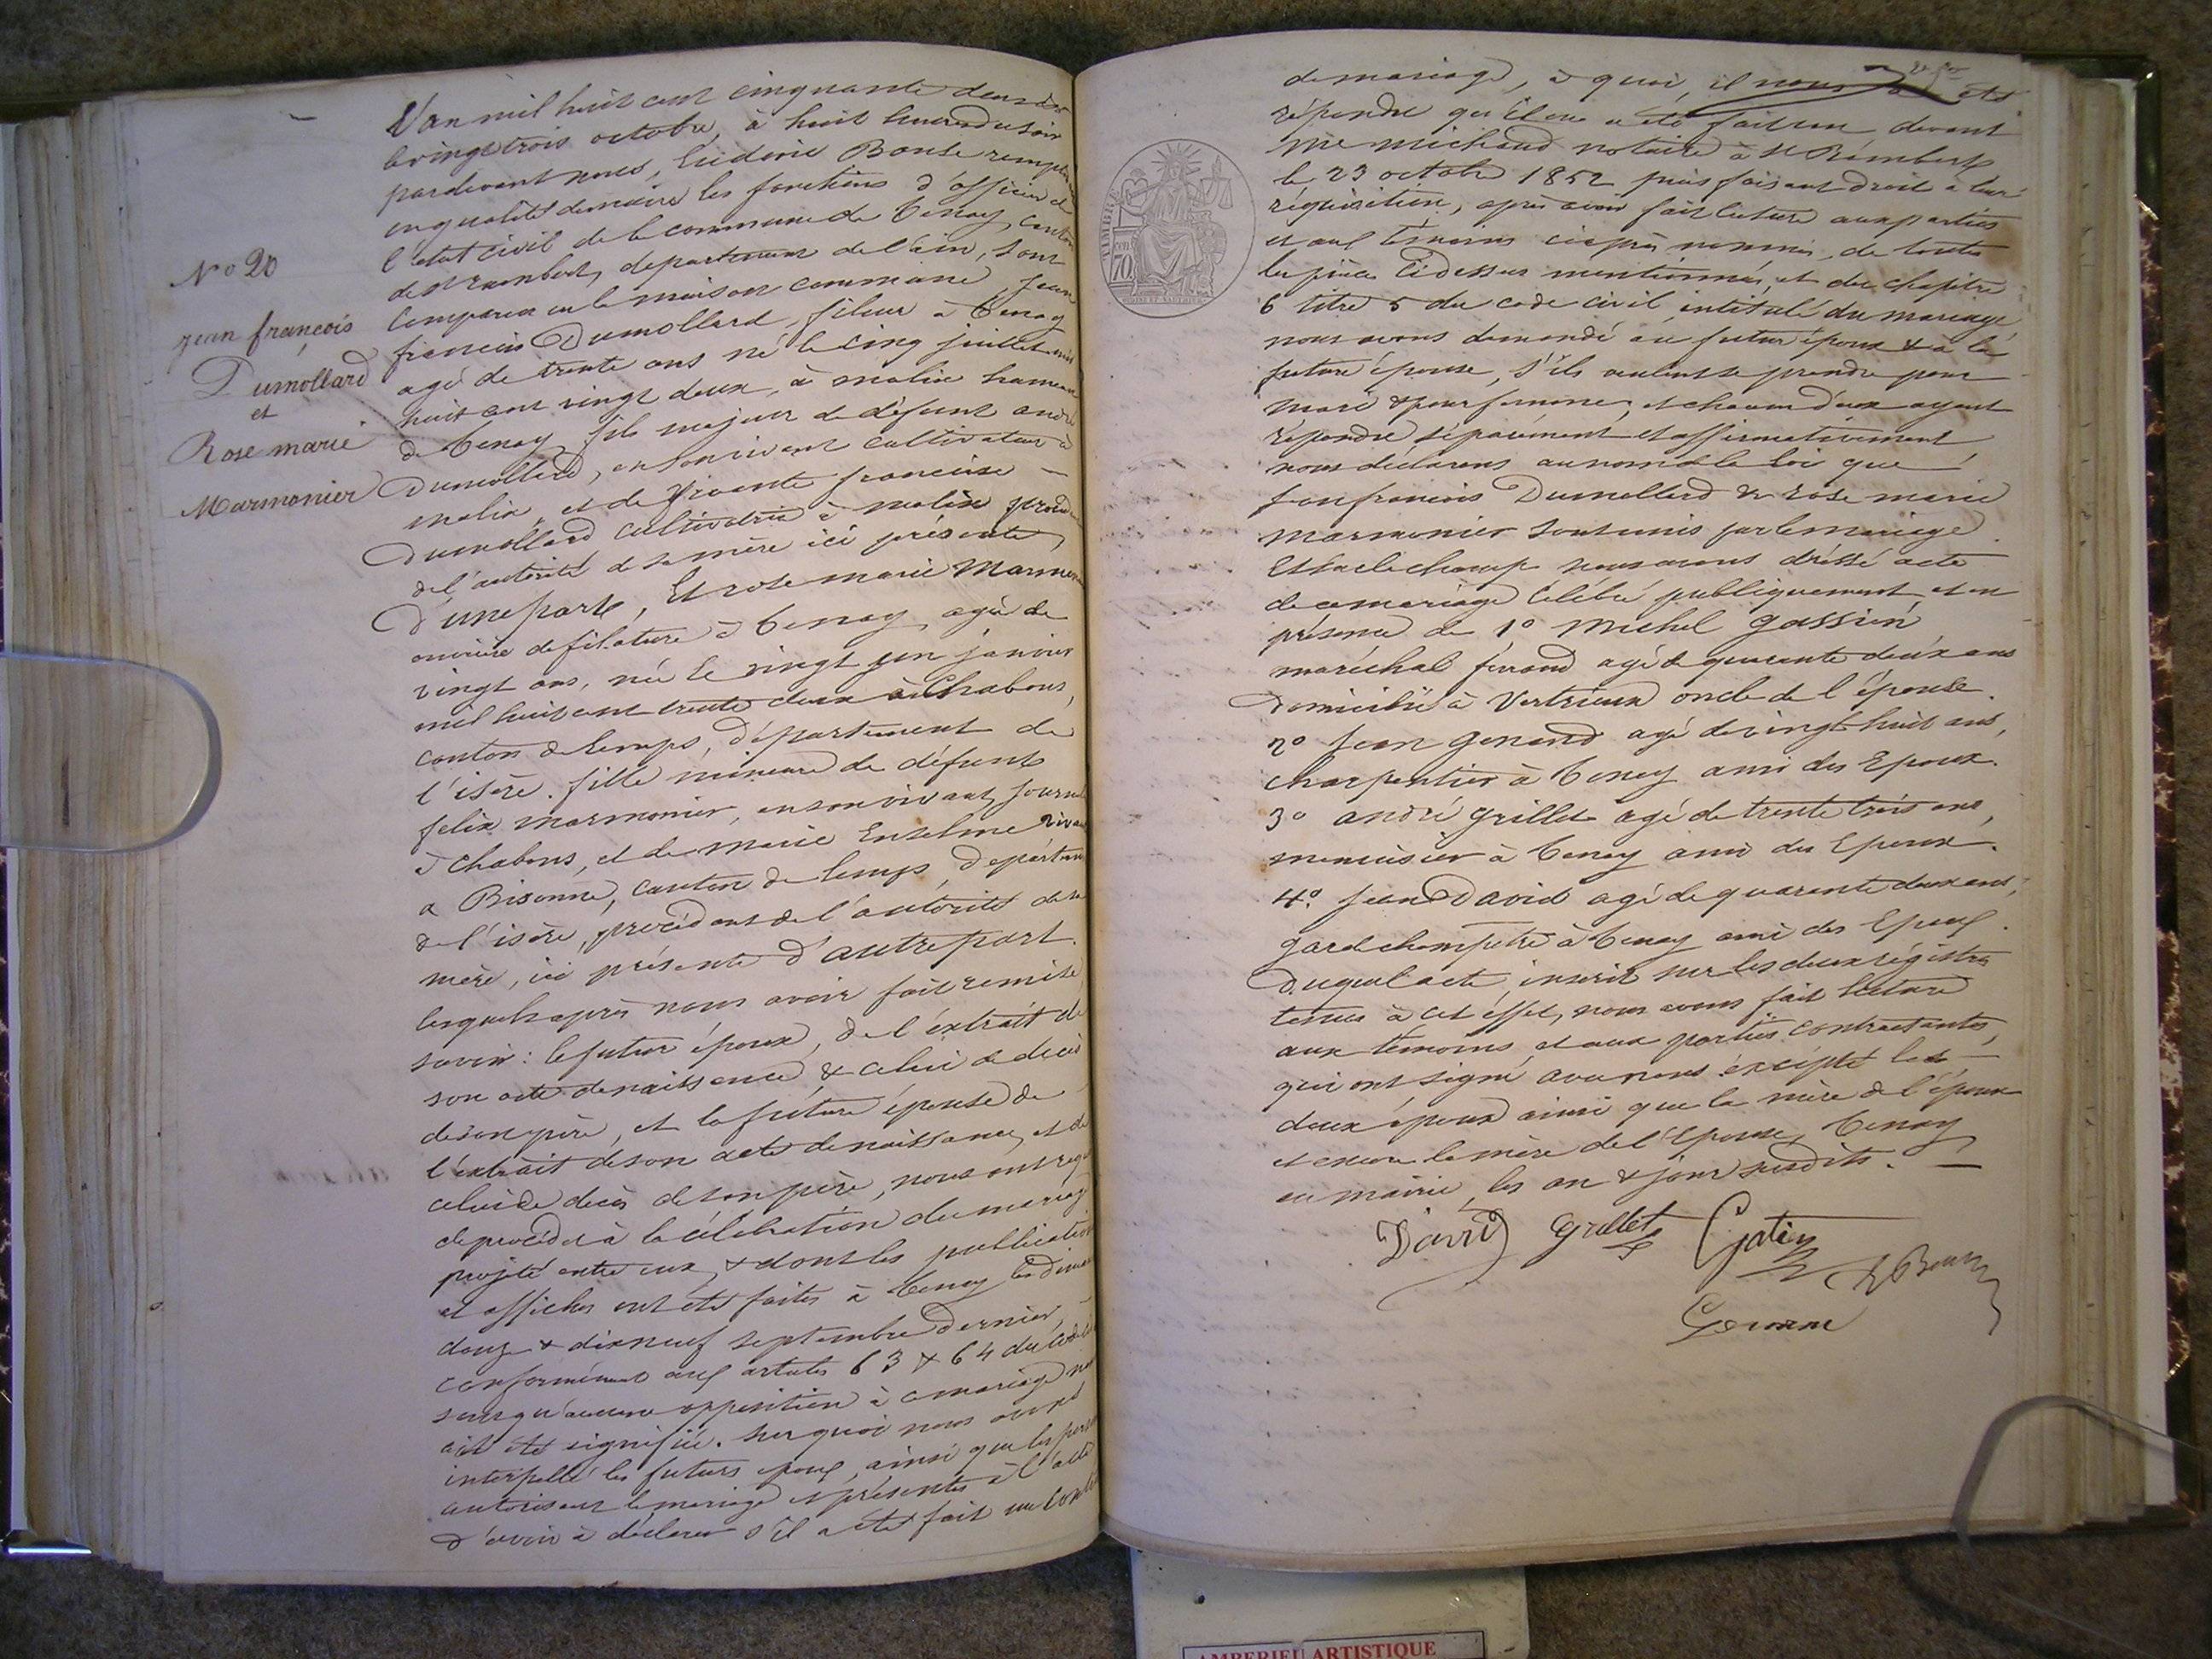 L'an mil huit cent cinquante deux, le
vingt trois octobre, à huit heures du soir
pardevant nous, Bonse
en qualité de maire les fonctions d'officier de
l'état civil de la commune de tenay, canton
de st rambert, département de l'ain, sont
comparus en la maison commune, Jean
françois Dumollard, fileur à tenay
agé de trente ans né le cinq juillet mil
huit cent vingt deux, à malix hameau
de tenay, fils majeur de défunt andré
Dumollard, en son vivant cultivateur à
malix, et de vivante françoise
Dumollard cultivatrice à malix
de l'autorité de sa mère ici présente,
D'une part, Et rose marie Marmonier
ouvrière de filature à tenay, agée de
vingt ans, née le vingt un janvier
mil huit cent trente deux à Chabons,
canton de lemps, département de
l'isère. fille mineure de défunt
felix marmonier, en son vivant
à Chabons, et de marie Enselme
a Bisonne, canton de lemps,
de l'isère, procédant de l'autorité de sa
mère, ici présente d'autre part.
lesquels après nous avoir fait remise
savoir: le futur époux, de l'extrait de
son acte de naissance & celui de décès
de son père, et la future épouse de
l'extrait de son acte de naissance, et de
celui de décès de son père, nous ont requis
de procéder à la célébration du mariage
projeté entre eux, & dont les publications
et affiches ont été faites à tenay les
douze & dixneuf septembre dernier,
conformément aux articles 63 & 64 du code
sans qu'aucune opposition à ce mariage nous
ait été signifiée. sur quoi nous avons
interpellé les futurs époux, ainsi que les
autorisant le mariage et présentes à l'acte
d'avoir à déclarer s'il a été fait un
N° 20
jean françois
Dumollard
et
Rose marie
Marmonier
de mariage, à quoi, il nous a été
répondu qu'il en a été fait un devant
me michaud notaire à st Rambert
le 23 octobre 1852 puis faisant droit a leur
réquisition, après avoir fait lecture aux parties
et aux témoins ciaprès nommés, de toutes
les pièces ci dessus mentionnées, et du chapitre
6 titre 5 du code civil, intitulé du mariage
nous avons demandé au futur époux & à la
future épouse, s'ils veulent se prendre pour
mari & pour femme, et chacun d'eux ayant
répondu séparément et affirmativement,
nous déclarons au nom de la loi que
jean françois Dumollard & rose marie
marmonier sont unis par le mariage.
Et sur le champ nous avons dressé acte
de ce mariage célébré publiquement, et en
présence de 1° Michel gassien
maréchal ferrand agé de quarante deux ans
domicilié à Vertrieux oncle de l'épouse.
2° jean genand agé de vingt huit ans,
charpentier à tenay ami des Epoux.
3° andré grillet agé de trente trois ans,
menuisier à tenay ami des Epoux.
4° jean David agé de quarante deux ans,
gard champetre à tenay ami des Epoux.
Duquel acte, inscrit sur les deux régistres
tenus à cet éffet, nous avons fait lecture
aux témoins, et aux parties contractantes,
qui ont signé avec nous éxcepté les
deux époux ainsi que la mère de l'époux
et encore la mère de l'épouse, tenay
en mairie, les an & jour susdits.
David Grillet
TIMBRE
70
AMBERIEU ARTISTIQUE